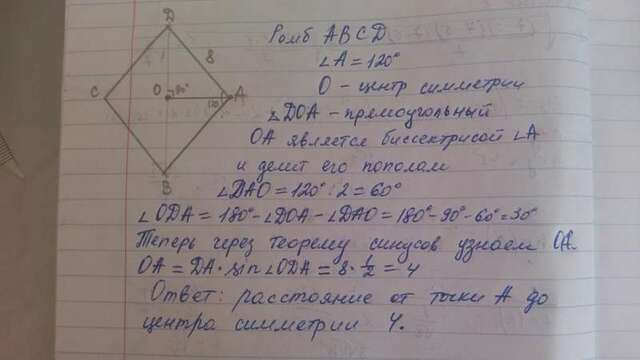 Ромб ABCD
∠A = 120°
O - центр симметрии
∠DOA - прямоугольный
OA является биссектрисой ∠A
и делит его пополам
∠DAO = 120° : 2 = 60°
∠ODA = 180° - ∠DOA - ∠DAO = 180° - 90° - 60° = 30°
Теперь через теорему синусов узнаем OA.
OA = DA · sin ∠ODA = 8 · 1/2 = 4
Ответ: расстояние от точки A до
центра симметрии 4.
D
8
C
O
90°
120°
A
B